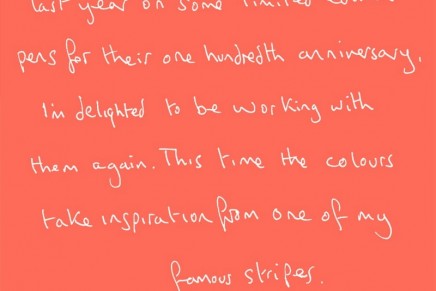 last year on some limited
pens for their one hundredth anniversary.
I'm delighted to be working with
them again. This time the colours
take inspiration from one of my
famous stripes.